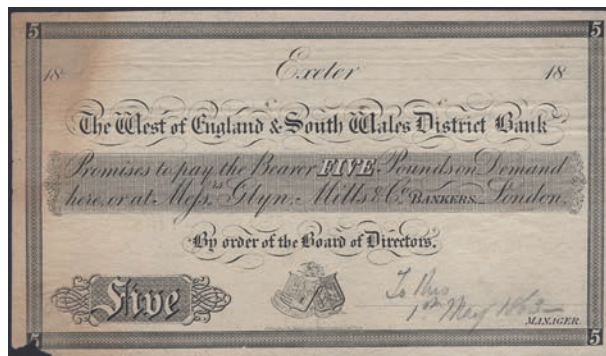 5 5
18 Exeter 18
The West of England & South Wales District Bank
Promises to pay the Bearer FIVE Pounds on Demand
here, or at Messrs. Glyn, Mills & Co. BANKERS. London.
By order of the Board of Directors.
Five
To this
1st May 1863
MANAGER.
5 5